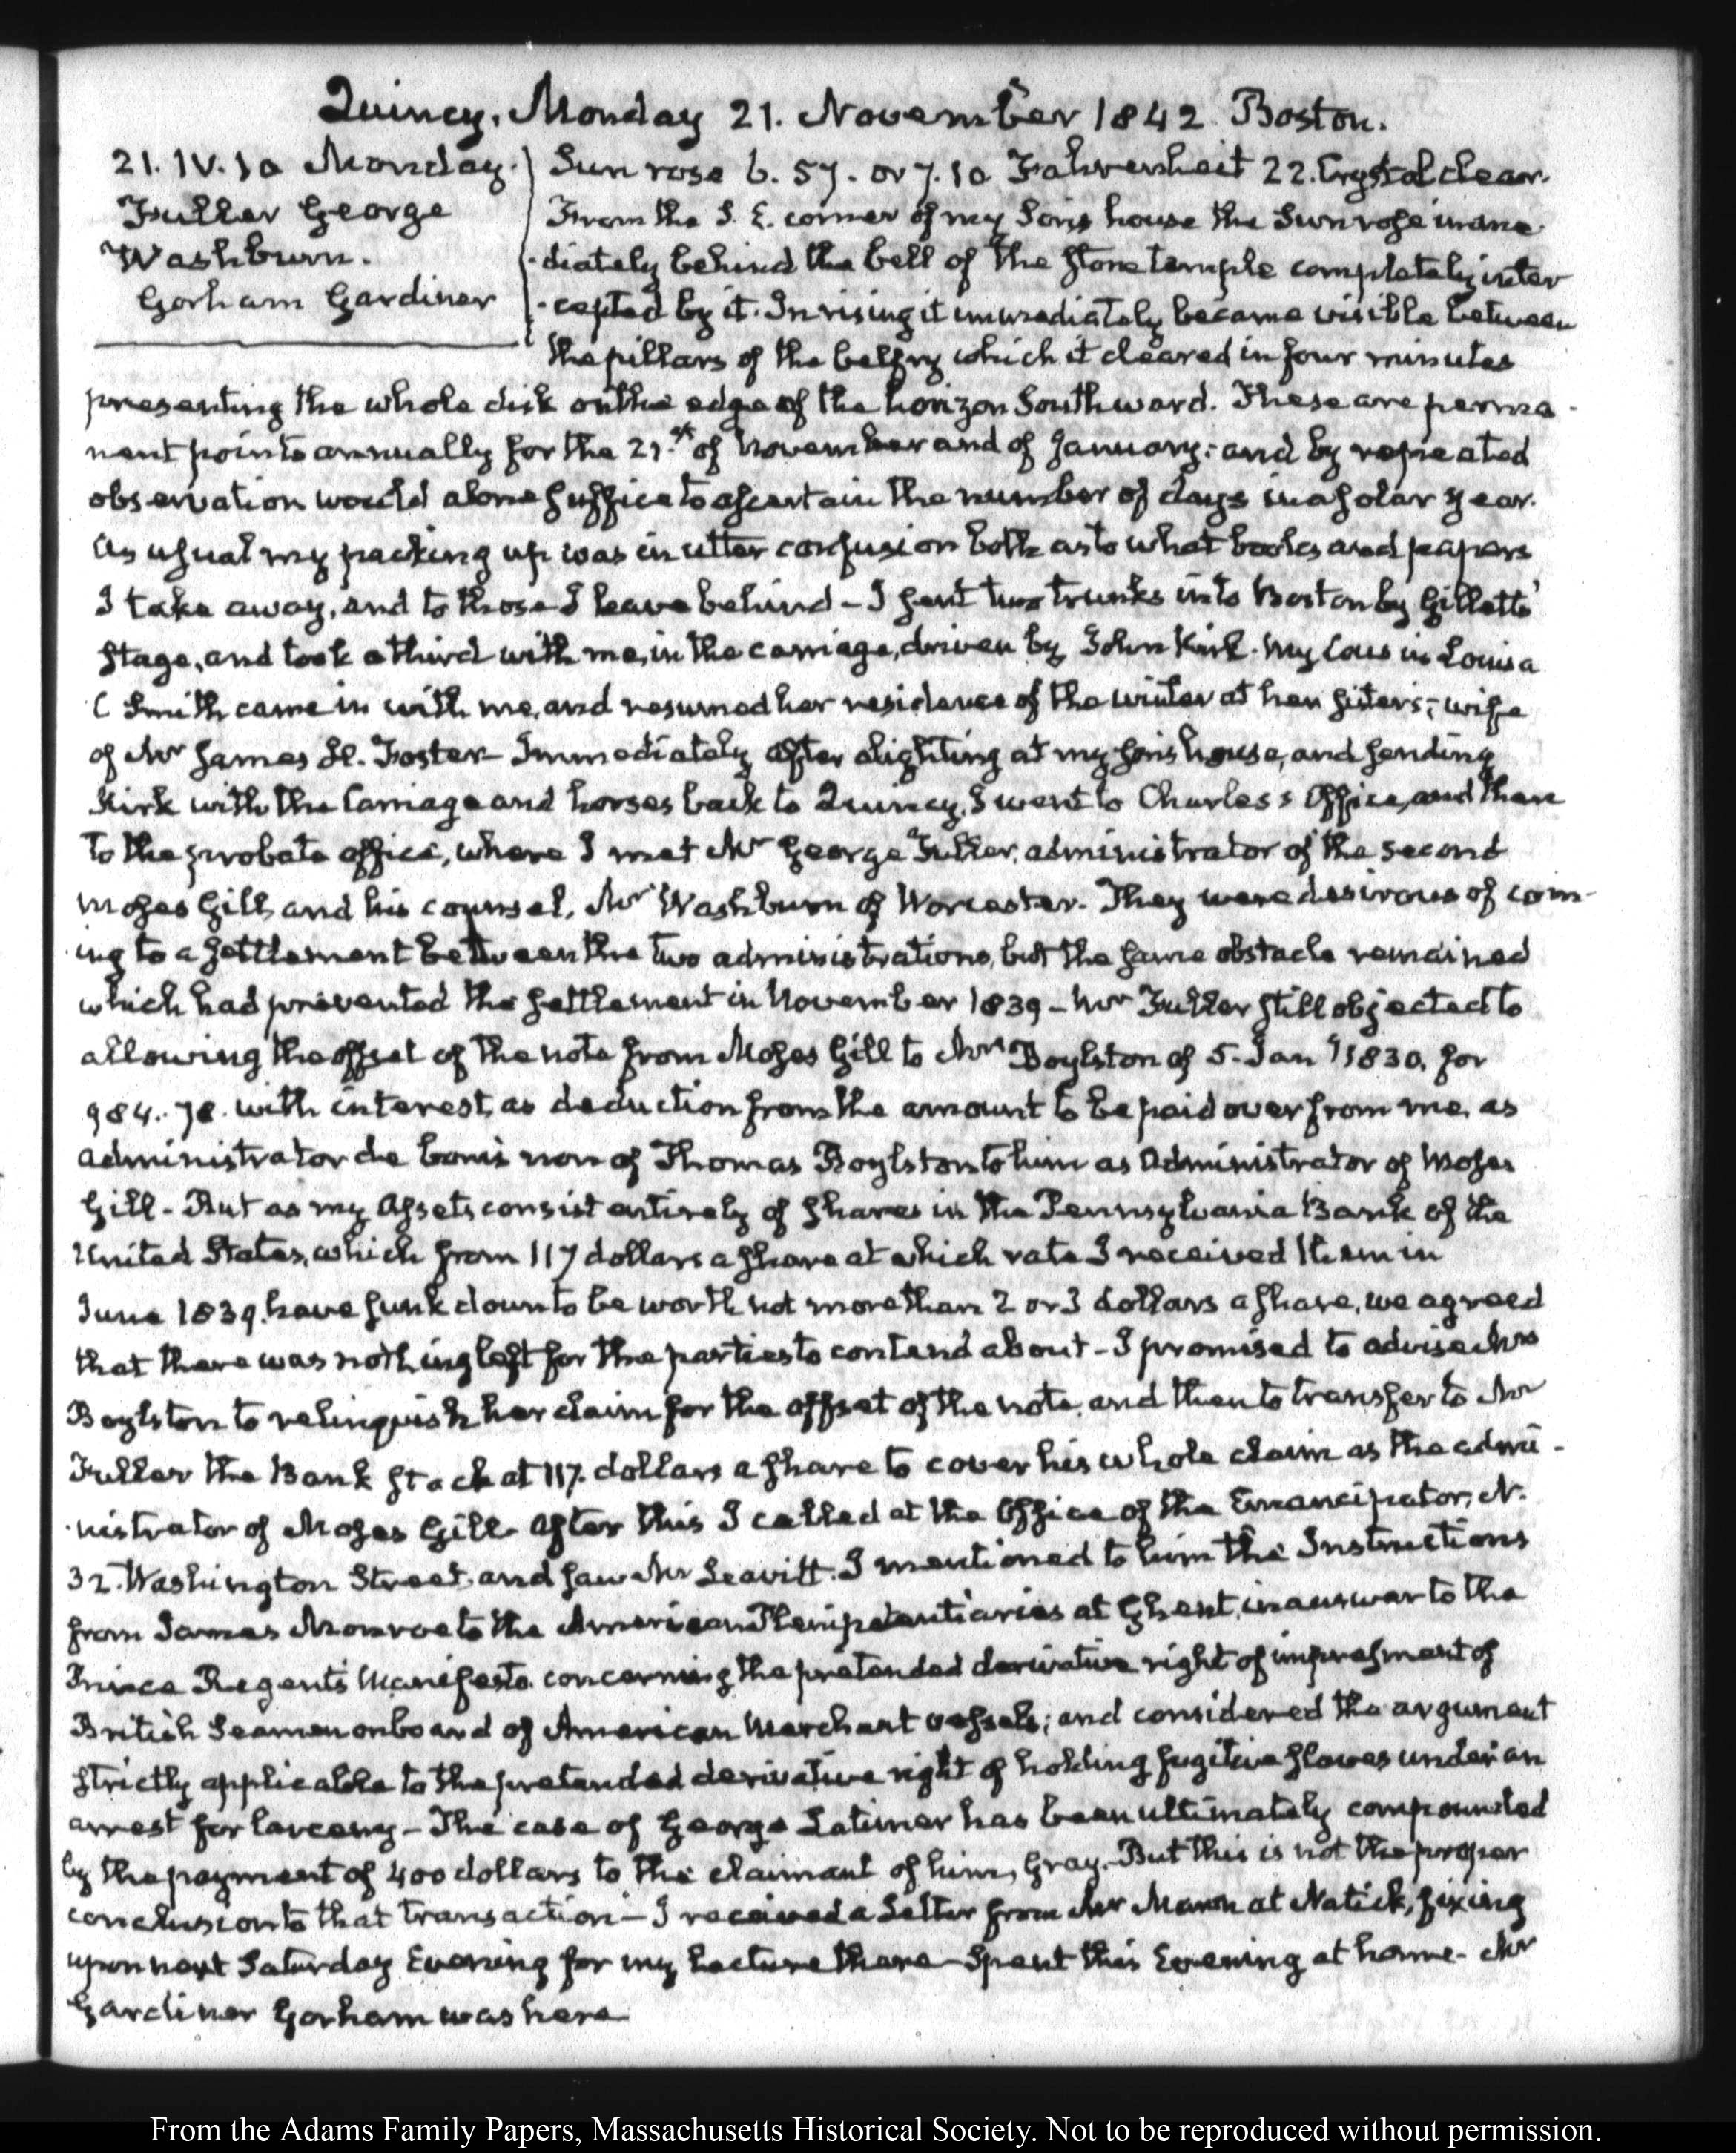 Quincy, Monday 21. November 1842. Boston.
21. IV. 10 Monday.
Fuller George
Washburn.
Gorham Gardiner
Sun rose 6. 57. or 7. 10 Fahrenheit 22. Crystal clear.
From the S. E. corner of my Son's house the Sun rose imme-
-diately behind the bell of the stone temple completely inter
-cepted by it. In rising it immediately became visible between
the pillars of the belfry which it cleared in four minutes
presenting the whole disk on the edge of the horizon Southward. These are perma-
nent points annually for the 21.st of November and of January; and by repeated
observation would alone suffice to ascertain the number of days in a solar year.
As usual my packing up was in utter confusion both as to what books and papers
I take away, and to those I leave behind - I sent two trunks into Boston by Gillett's
Stage, and took a third with me, in the carriage, driven by John Kirk. My Cousin Louisa
C Smith came in with me, and resumed her residence of the winter at her sister's; wife
of Mr James H. Foster - Immediately after alighting at my son's house, and sending
Kirk with the Carriage and horses back to Quincy, I went to Charles's Office, and then
to the probate office, where I met Mr George Fuller, administrator of the second
Moses Gill, and his counsel, Mr Washburn of Worcester. They were desirous of com-
-ing to a settlement between the two administrations, but the same obstacle remained
which had prevented the settlement in November 1839 - Mr Fuller still objected to
allowing the offset of the note from Moses Gill to Mrs Boylston of 5. Jany 1830. for
984..78. with interest, as deduction from the amount to be paid over from me, as
administrator de bonis non of Thomas Boylston to him as Administrator of Moses
Gill - But as my Assets consist entirely of shares in the Pennsylvania Bank of the
United States, which from 117 dollars a share at which rate I received them in
June 1839. have sunk down to be worth not more than 2 or 3 dollars a share, we agreed
that there was nothing left for the parties to contend about - I promised to advise Mrs
Boylston to relinquish her claim for the offset of the note, and then to transfer to Mr
Fuller the Bank Stock at 117. dollars a share to cover his whole claim as the admi-
-nistrator of Moses Gill. After this I called at the Office of the Emancipator, N.
32. Washington Street, and saw Mr Leavitt. I mentioned to him the Instructions
from James Monroe to the American Plenipotentiaries at Ghent, in answer to the
Prince Regent's Manifesto concerning the pretended derivative right of impressment of
British Seamen onboard of American Merchant vessels; and considered the argument
strictly applicable to the pretended derivative right of holding fugitive slaves under an
arrest for larceny - The case of George Latimer has been ultimately compounded
by the payment of 400 dollars to the claimant of him, Gray. But this is not the proper
conclusion to that transaction - I received a Letter from Mr Mann at Natick, fixing
upon next Saturday Evening for my Lecture there - Spent this Evening at home - Mr
Gardiner Gorham was here
From the Adams Family Papers, Massachusetts Historical Society. Not to be reproduced without permission.